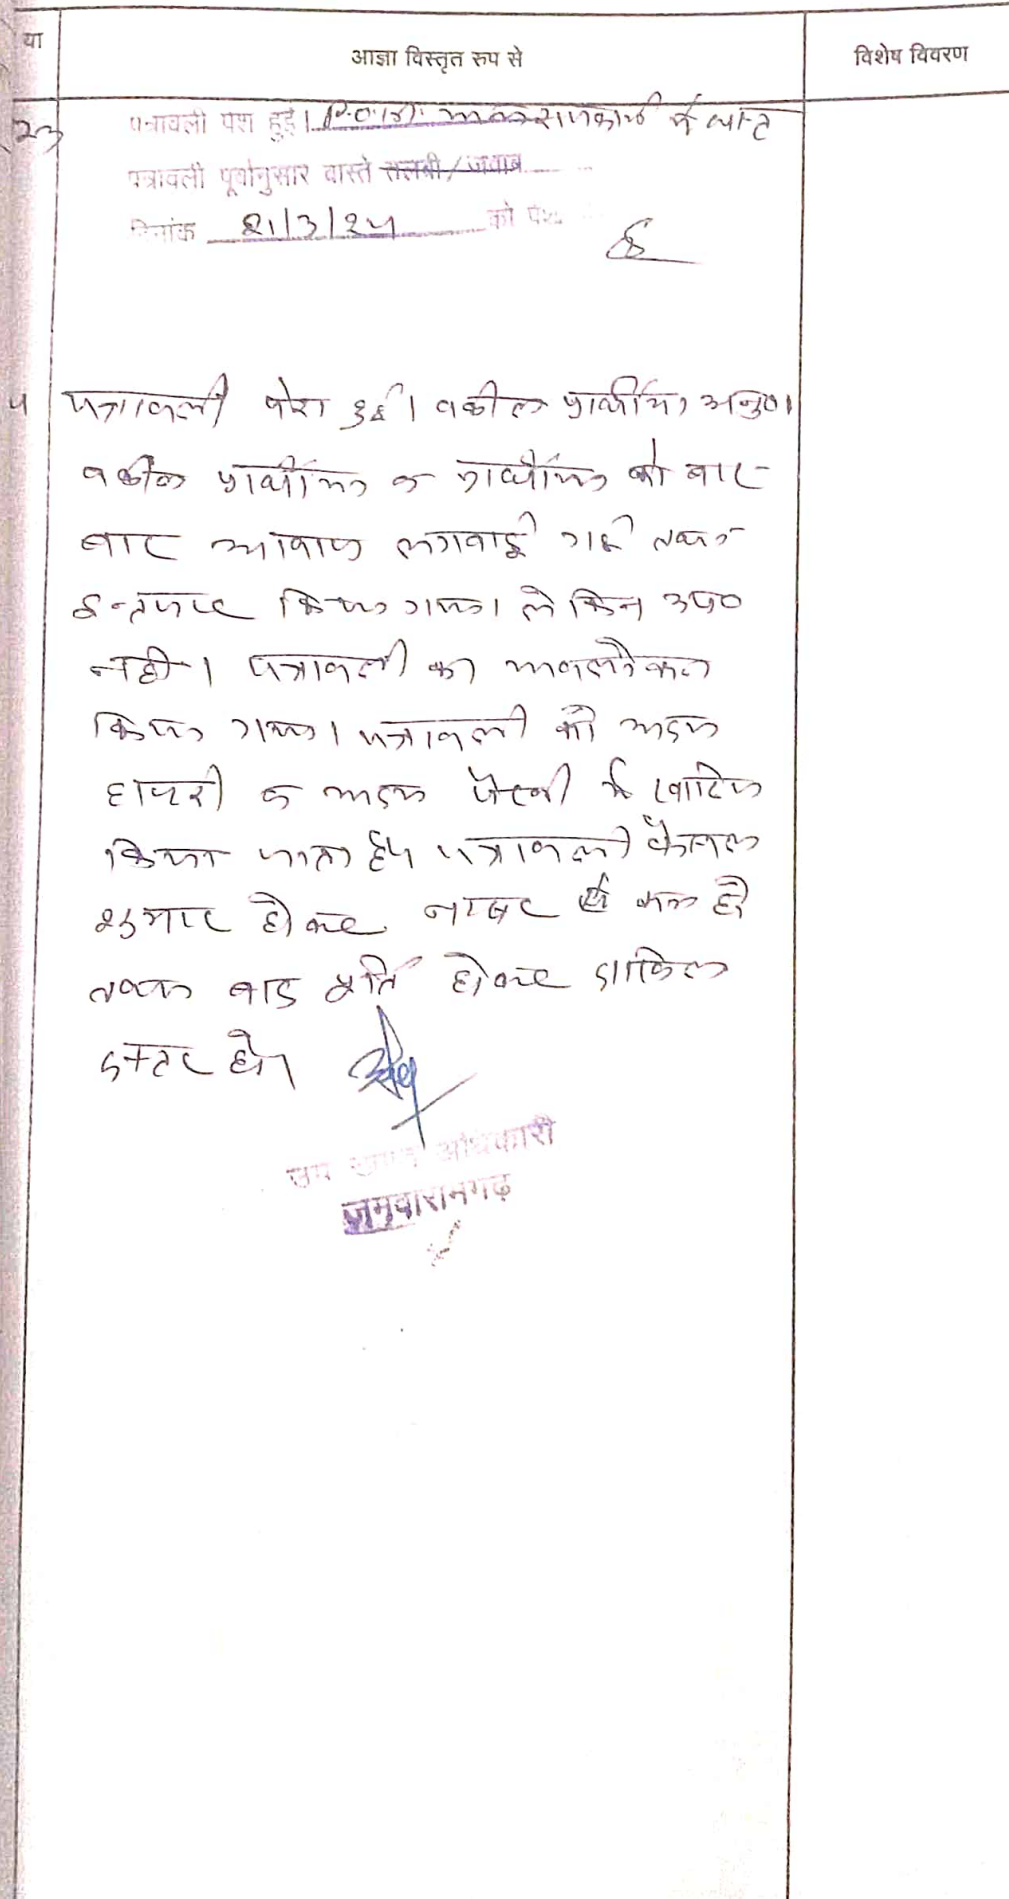 या
आज्ञा विस्तृत रूप से
विशेष विवरण
23
पत्रावली पेश हुई। P.O. राजकार्य में व्यस्त
पत्रावली पूर्वानुसार वास्ते तलबी/जवाब
दिनांक 21/3/24 को पेश
पत्रावली पेश हुई। वकील प्रार्थीया अनु०।
वकील प्रार्थीया व प्रार्थीया को बार-
बार आवाज लगवाई गई तथा
इन्तजार किया गया। लेकिन उप०
नही। पत्रावली का अवलोकन
किया गया। पत्रावली को अदम
हाजरी व अदम पैरवी में खारिज
किया जाता है। पत्रावली फैसल
शुमार होकर नम्बर से कम हो
तथा बाद पूर्ति होकर दाखिल
दफ्तर हो।
उप खण्ड अधिकारी
जमवारामगढ़